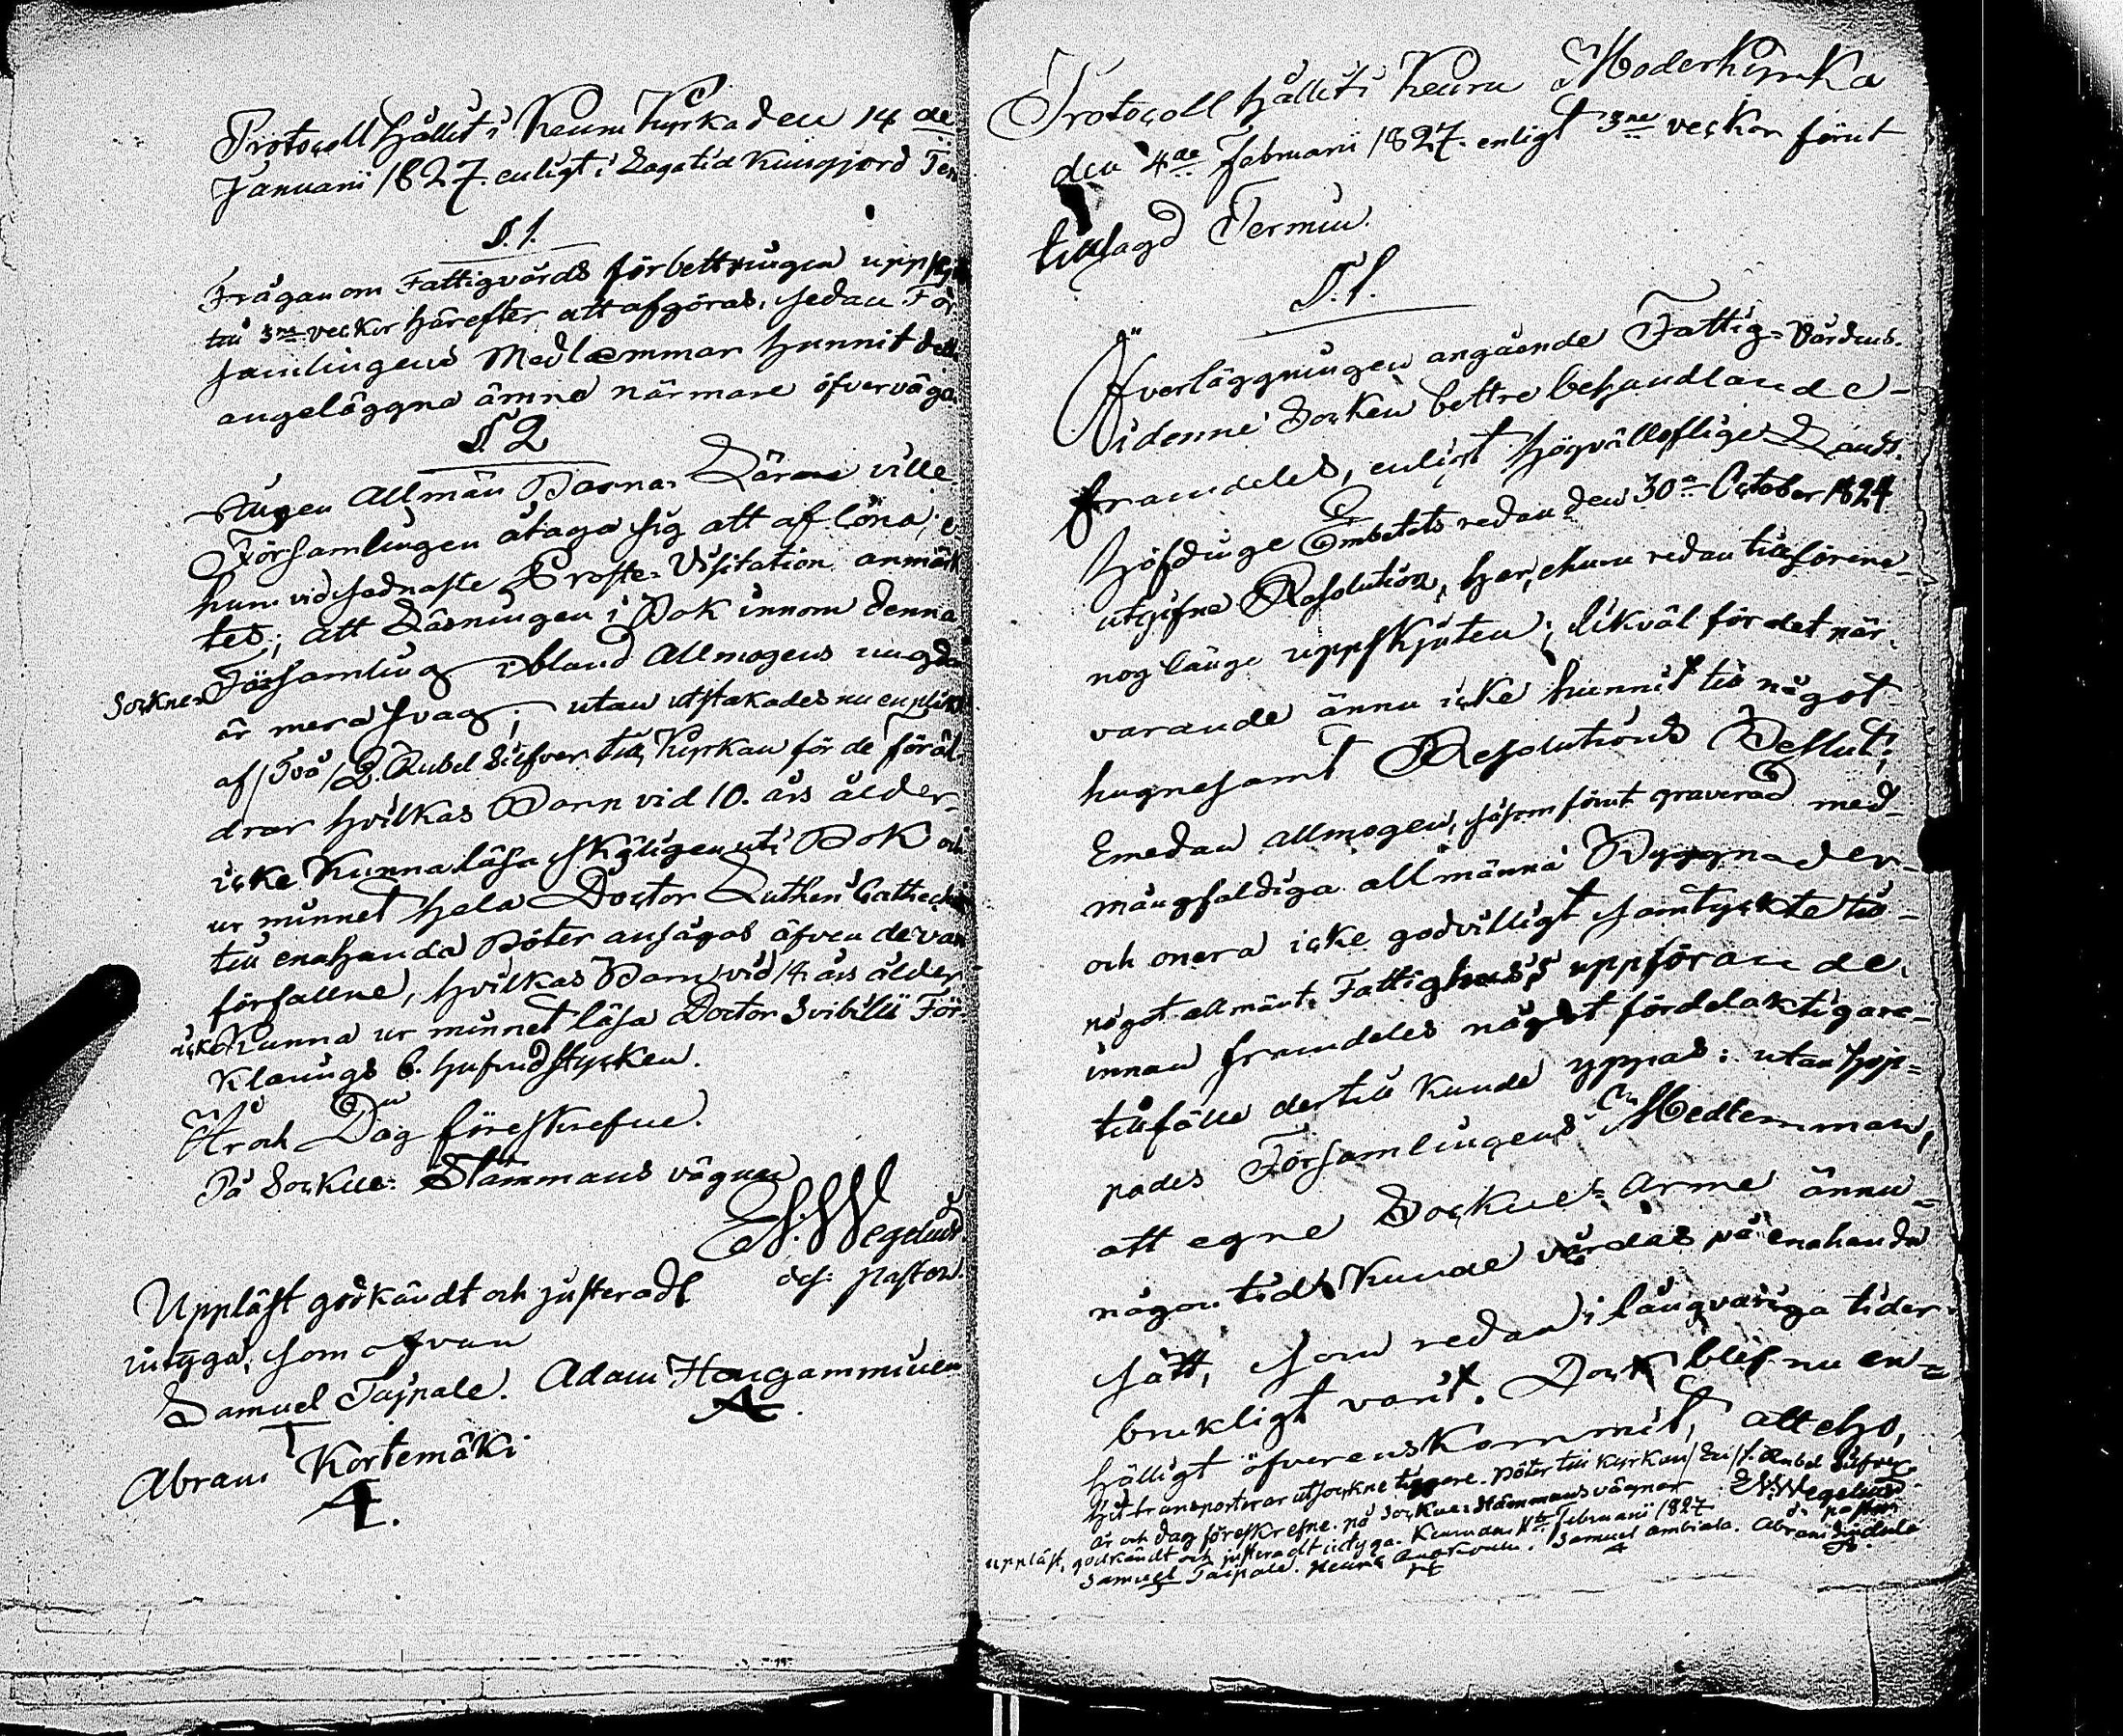 Protocoll hållit i Keuru Kyrka den 14 de
Januarii 1827. enligt i Lagatid kungjord Ter
§. 1.
Frågan om Fattigvårds förbettringen uppskjöt
till 3ne veckor härefter att afgöras, sedan För-
samlingens Medlemmar hunnit detta
angeläggna ämne närmare öfverväga.
§. 2
Ingen allmän Barna Lärare ville
Församlingen åtaga sig att aflöna, e
huru vid sednaste Prosts Visitation anmärk
tes, att Läsningen i Bok innom denna
Sockne Församling ibland allmogens ungdom
är mera svag; utan utstakades nu en plikt
af /Två/ 2. Rubel Silfver till Kyrkan för de föräl-
drar hvilkas Barn vid 10. års ålder
icke kunna läsa skäligen uti Bok och
ur minnet hela Doctor Lutheri Cathechis
till enahanda Böter ansågos äfven de vara
förfallne, hvilkas Barn vid 14 års ålder
icke kunna ur minnet läsa Doctor Svibilii För-
klarings 6. hufvudstycken.
År och Dag föreskrefne.
På Sockne Stämmans vägnar
E. N. Wegelius
Pastor.
Uppläst godkändt och justeradt
intyga, som ofvan
Samuel Taipale. Adam Hougamminen
Abram Kortemäki
Protocoll hållit i Keuru Moderkyrka
den 4de Februarii 1827. enligt 3ne veckor förut
tillsagd Termin.
§. 1.
Öfverläggningen angående Fattig-Vårdens
i denne Socken bettre behandlande
framdeles, enligt Högvälloflige Lands-
höfdinge Embetets redan den 30de October 1824
utgifne Resolution, har, ehuru redan tillförene
nog länge uppskjuten; likväl för det när-
varande ännu icke hunnit till något
hugnesamt Resolutions Beslut;
Emedan allmogen, såsom förut graverad med
mångfaldiga allmänna Byggnader
och onera icke godvilligt samtyckte till
något allmänt Fattighus's uppförande
innan framdeles något fördelaktigare
tillfälle dertill kunde yppas: utan hop-
pades Församlingens Medlemmar,
att egne Sockne Arme ännu
någon tid kunde vårdas på enahanda
sätt, som redan i långvariga tider
brukligt varit. Dock blef nu en-
hälligt öfverenskommit, att eho,
hit transporterar utsockne tiggere. Böter till Kyrkan /En/ 1. Rubel Silfver.
År och dag föreskrefne. på Sockne Stämmans vägnar E. N. Wegelius
Pastor
Uppläst, godkändt och justeradt intyga. Keuru den Februarii 1827
Samuel Taipale. Samuel Ambiala. Abram